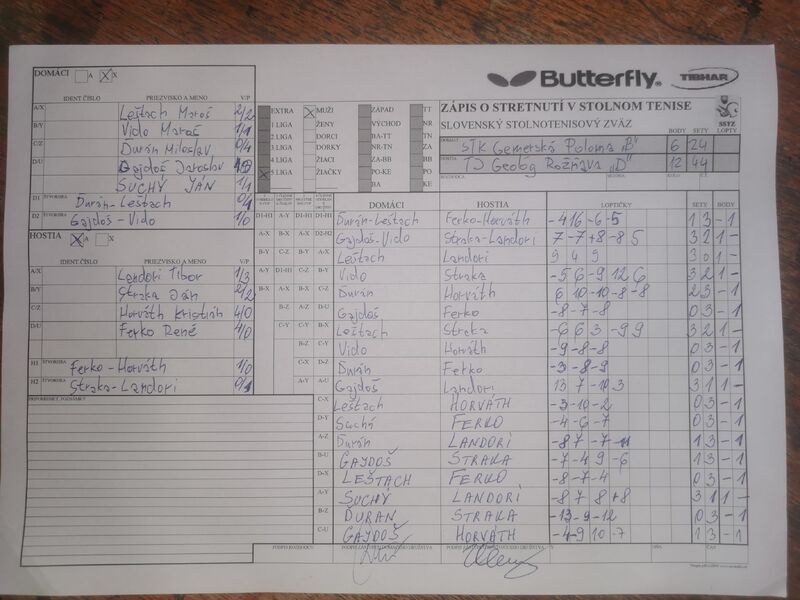 DOMÁCI A X
IDENT ČÍSLO PRIEZVISKO A MENO V/P
A/X Leštach Maroš 2/2
B/Y Vido Maroš 1/1
C/Z Ďurán Miloslav 0/4
D/U Gajdoš Jaroslav
SUCHÝ JÁN 1/1
D1 ŠTVORHRA Ďurán-Leštach 0/1
D2 ŠTVORHRA Gajdoš-Vido 1/0
HOSTIA A X
IDENT ČÍSLO PRIEZVISKO A MENO V/P
A/X Landori Tibor 1/3
B/Y Straka Ján 2/2
C/Z Horváth Kristián 4/0
D/U Ferko René 4/0
H1 ŠTVORHRA Ferko-Horváth 1/0
H2 ŠTVORHRA Straka-Landori 0/1
EXTRA MUŽI ZÁPAD TT
1.LIGA ŽENY VÝCHOD NR
2.LIGA DORCI BA-TT TN
3.LIGA DORKY NR-TN ZA
4.LIGA ŽIACI ZA-BB BB
5.LIGA ŽIAČKY PO-KE PO
BA KE
Butterfly TIBHAR
ZÁPIS O STRETNUTÍ V STOLNOM TENISE
SLOVENSKÝ STOLNOTENISOVÝ ZVÄZ
SSTZ
BODY SETY LOPTY
STK Gemerská Poloma "B" 6 24
TJ Geológ Rožňava "D" 12 44
DOMÁCI HOSTIA LOPTIČKY SETY BODY
D1-H1 Ďurán-Leštach Ferko-Horváth -4 16 -6 -5 1 3 - 1
D2-H2 Gajdoš-Vido Straka-Landori 7 -7 +8 -8 5 3 2 1 -
A-X Leštach Landori 9 4 9 3 0 1 -
B-Y Vido Straka -5 6 -9 12 6 3 2 1 -
C-Z Ďurán Horváth 6 10 -10 -8 -8 2 3 - 1
D-U Gajdoš Ferko -8 -7 -8 0 3 - 1
B-X Leštach Straka -6 6 3 -9 9 3 2 1 -
C-Y Vido Horváth -9 -8 -8 0 3 - 1
D-Z Ďurán Ferko -3 -8 -9 0 3 - 1
A-U Gajdoš Landori 13 7 -10 3 3 1 1 -
C-X Leštach HORVÁTH -3 -10 -2 0 3 - 1
D-Y Suchý FERKO -4 -6 -7 0 3 - 1
A-Z Ďurán LANDORI -8 7 -7 -11 1 3 - 1
B-U GAJDOŠ STRAKA -7 -4 9 -6 1 3 - 1
D-X LEŠTACH FERKO -8 -7 -4 0 3 - 1
A-Y SUCHÝ LANDORI -8 7 8 +8 3 1 1 -
B-Z ĎURAN STRAKA -13 -9 -12 0 3 - 1
C-U GAJDOŠ HORVÁTH -4 -9 10 -7 1 3 - 1